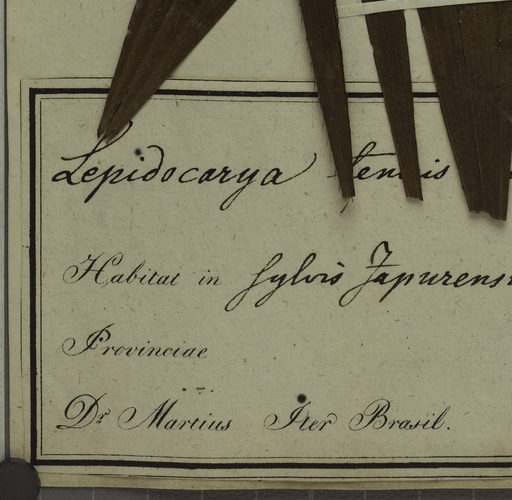 Lepidocarya tenuis
Habitat in sylvis Japurens
Provinciae
Dr Martius Iter Brasil.